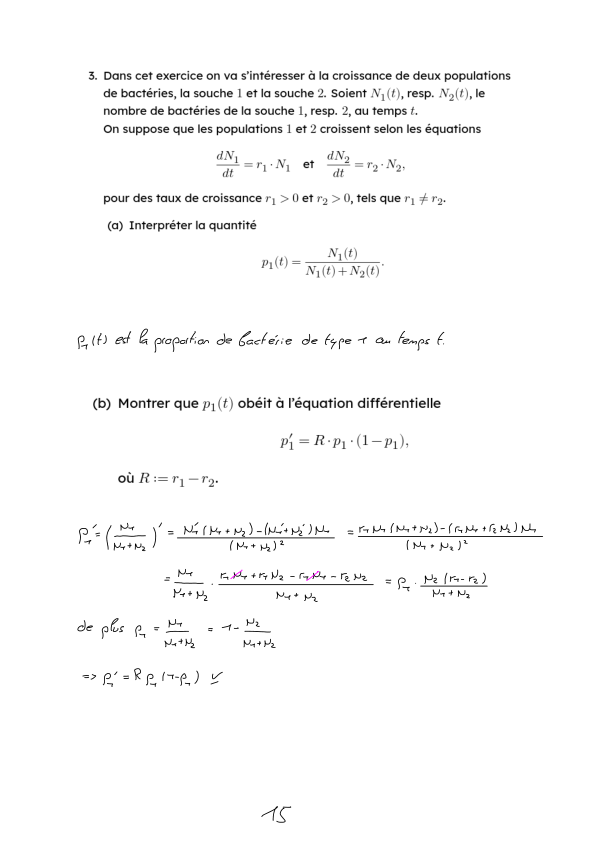 3. Dans cet exercice on va s'intéresser à la croissance de deux populations
de bactéries, la souche 1 et la souche 2. Soient N₁(t), resp. N₂(t), le
nombre de bactéries de la souche 1, resp. 2, au temps t.
On suppose que les populations 1 et 2 croissent selon les équations
dN₁/dt = r₁ · N₁ et dN₂/dt = r₂ · N₂,
pour des taux de croissance r₁ > 0 et r₂ > 0, tels que r₁ ≠ r₂.
(a) Interpréter la quantité
p₁(t) = N₁(t)/(N₁(t)+N₂(t)).
p₁(t) est la proportion de bactérie de type 1 au temps t.
(b) Montrer que p₁(t) obéit à l'équation différentielle
p₁′ = R · p₁ · (1−p₁),
où R := r₁−r₂.
p₁′ = (N₁/(N₁+N₂))′ = (N₁′(N₁+N₂)−(N₁′+N₂′)N₁)/(N₁+N₂)² = (r₁N₁(N₁+N₂)−(r₁N₁+r₂N₂)N₁)/(N₁+N₂)²
= N₁/(N₁+N₂) · (r₁N₁+r₁N₂−r₁N₁−r₂N₂)/(N₁+N₂) = p₁ · N₂(r₁−r₂)/(N₁+N₂)
de plus p₁ = N₁/(N₁+N₂) = 1− N₂/(N₁+N₂)
=> p₁′ = R p₁(1−p₁) ✓
15